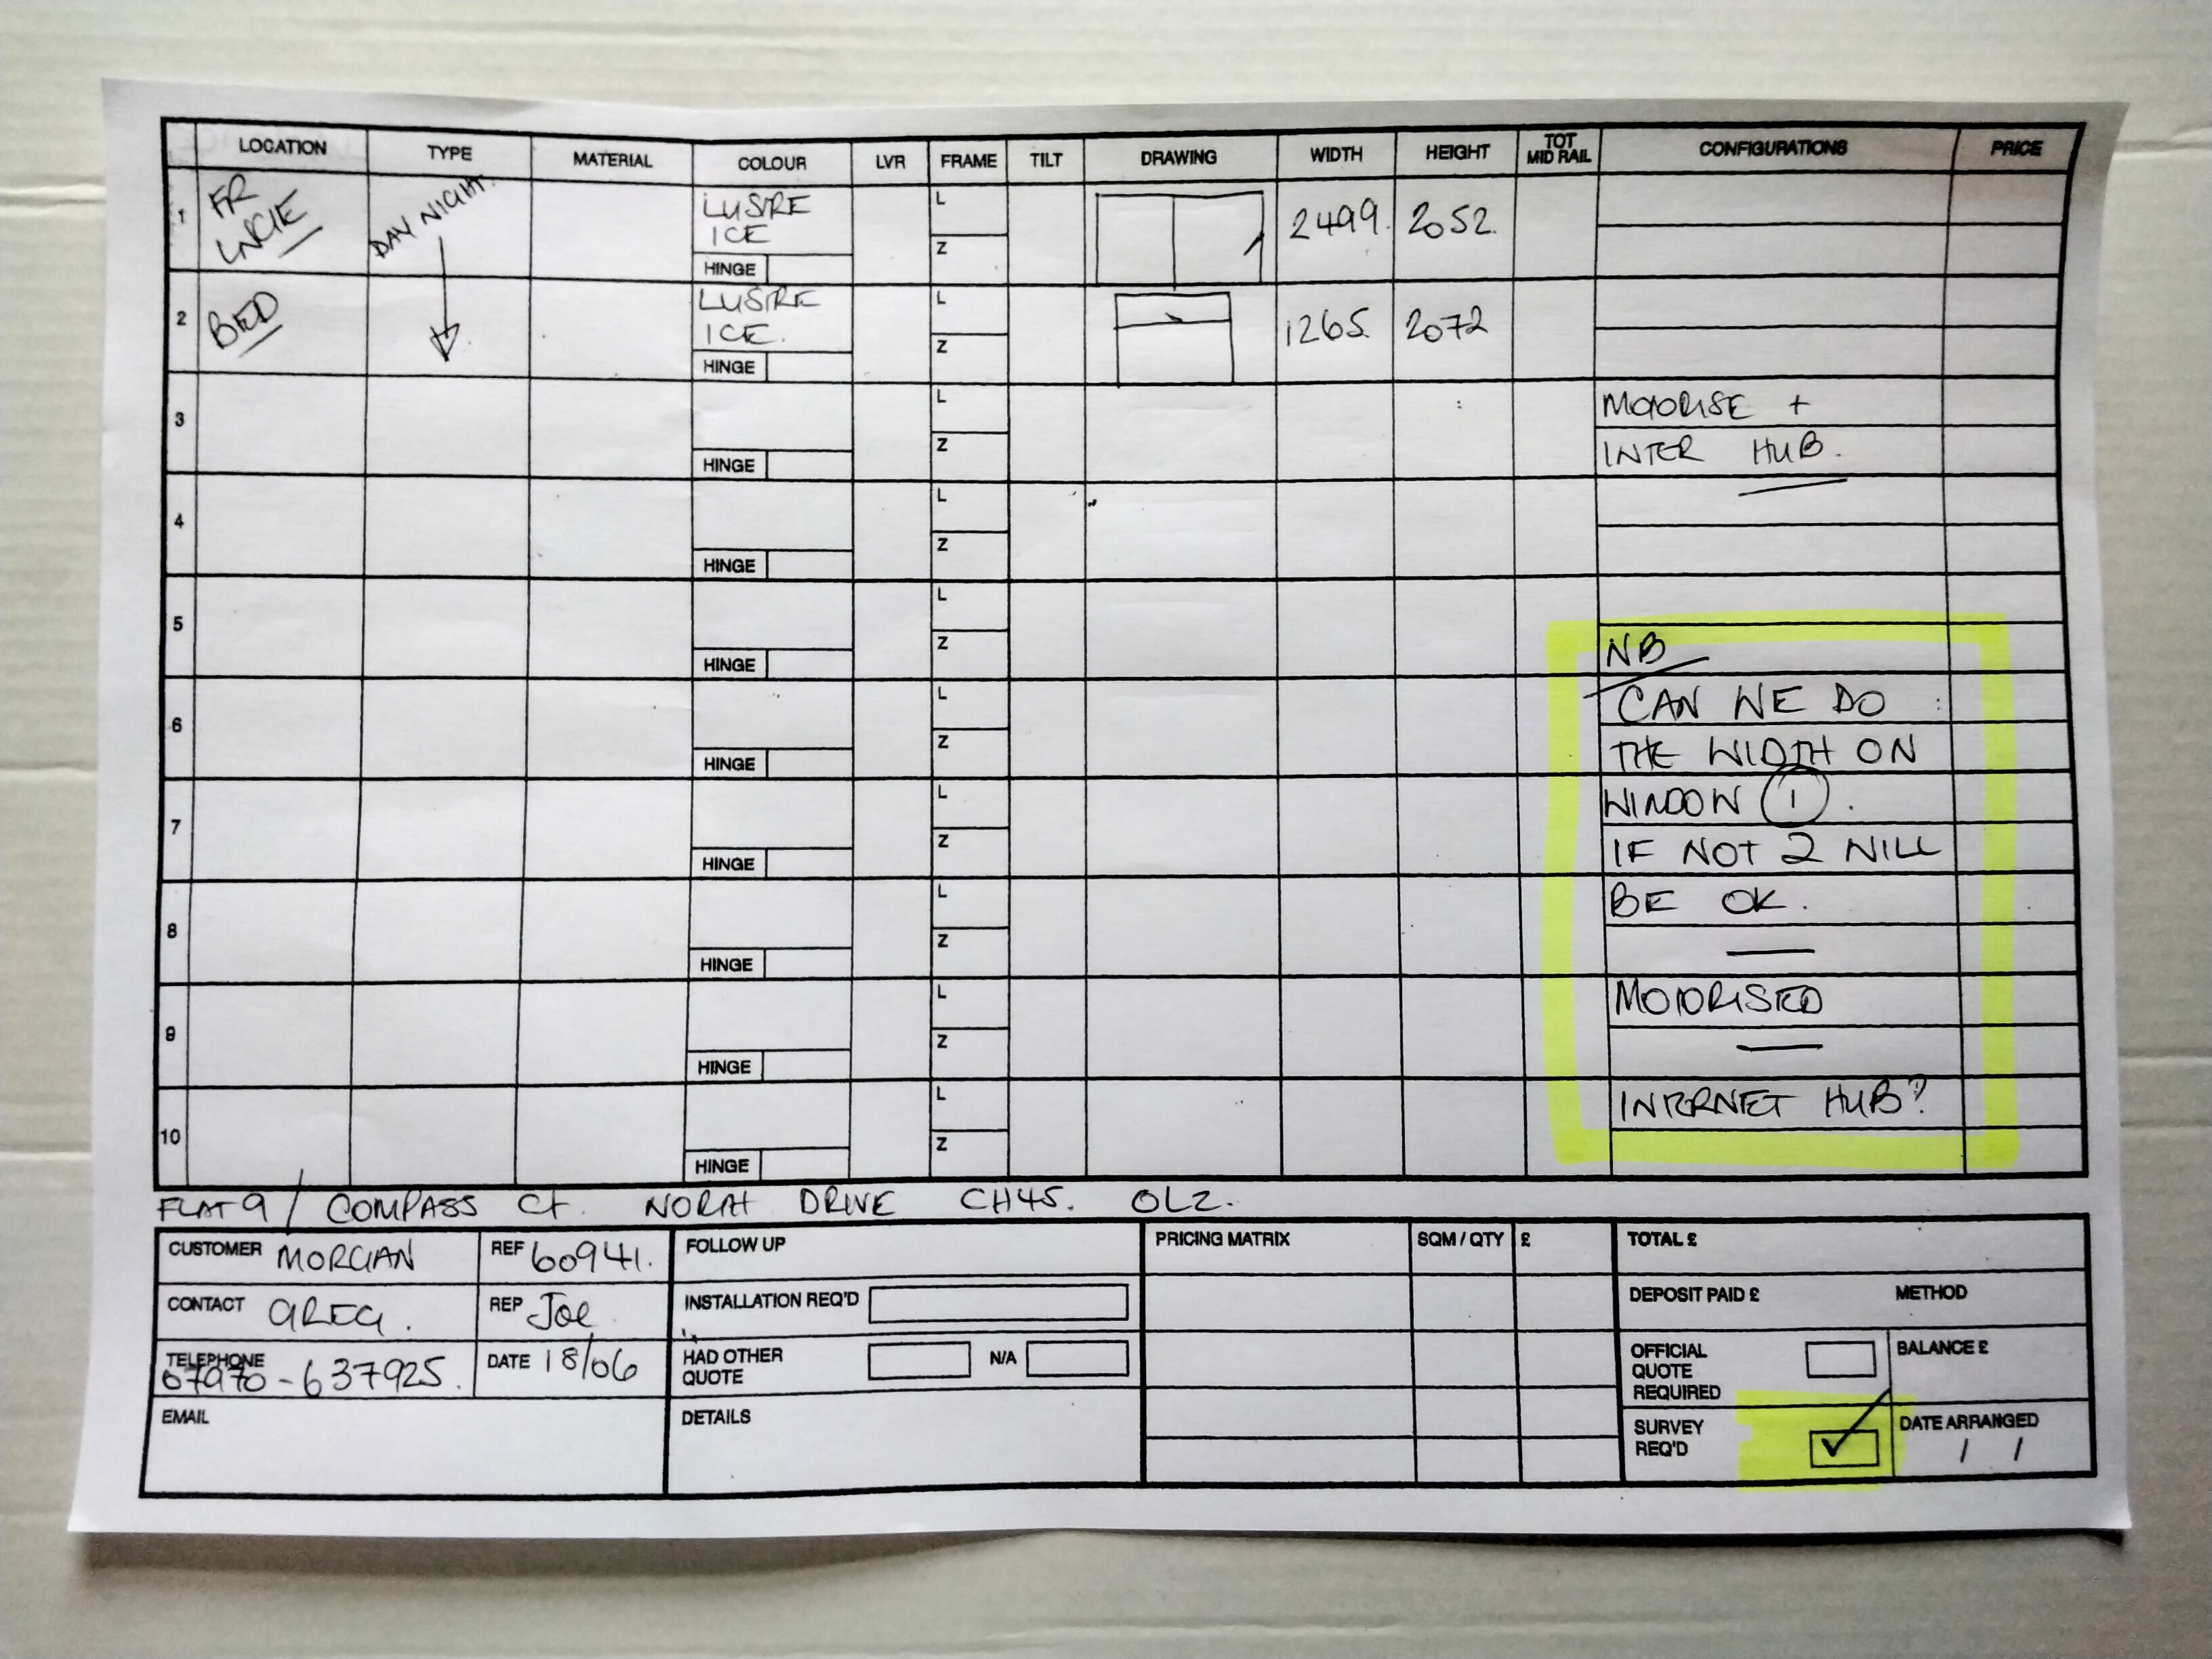 LOCATION TYPE MATERIAL COLOUR LVR FRAME TILT DRAWING WIDTH HEIGHT TOT MID RAIL CONFIGURATIONS PRICE
1 FR DAY NIGHT LUSTRE L 2499. 2052.
ICE Z
HINGE
2 BED LUSTRE L 1265 2072
ICE. Z
HINGE
3 L MOTORISE +
Z INTER HUB.
HINGE
4 L
Z
HINGE
5 L
Z NB
HINGE
6 L CAN WE DO
Z THE WIDTH ON
HINGE
7 L WINDOW 1.
Z IF NOT 2 WILL
HINGE
8 L BE OK.
Z
HINGE
9 L MOTORISED
Z
HINGE
10 L INTERNET HUB?
Z
HINGE
FLAT 9 / COMPASS CT. NORTH DRIVE CH45. OLZ.
CUSTOMER MORGAN REF 60941. FOLLOW UP PRICING MATRIX SQM / QTY £ TOTAL £
CONTACT GREG. REP Joe INSTALLATION REQ'D DEPOSIT PAID £ METHOD
TELEPHONE 07970-637925. DATE 18/06 HAD OTHER QUOTE N/A OFFICIAL QUOTE REQUIRED BALANCE £
EMAIL DETAILS SURVEY REQ'D DATE ARRANGED / /